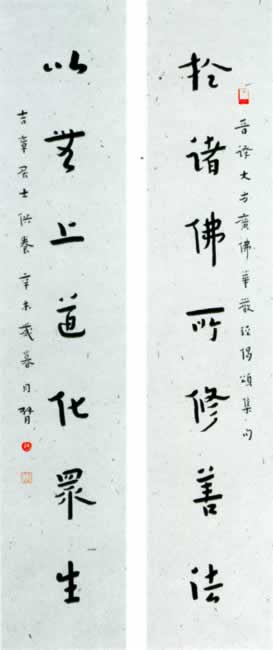 晉譯大方廣佛華嚴經偈頌集句
扵諸佛所修善法
以無上道化眾生
吉章居士供養辛未歲暮月臂